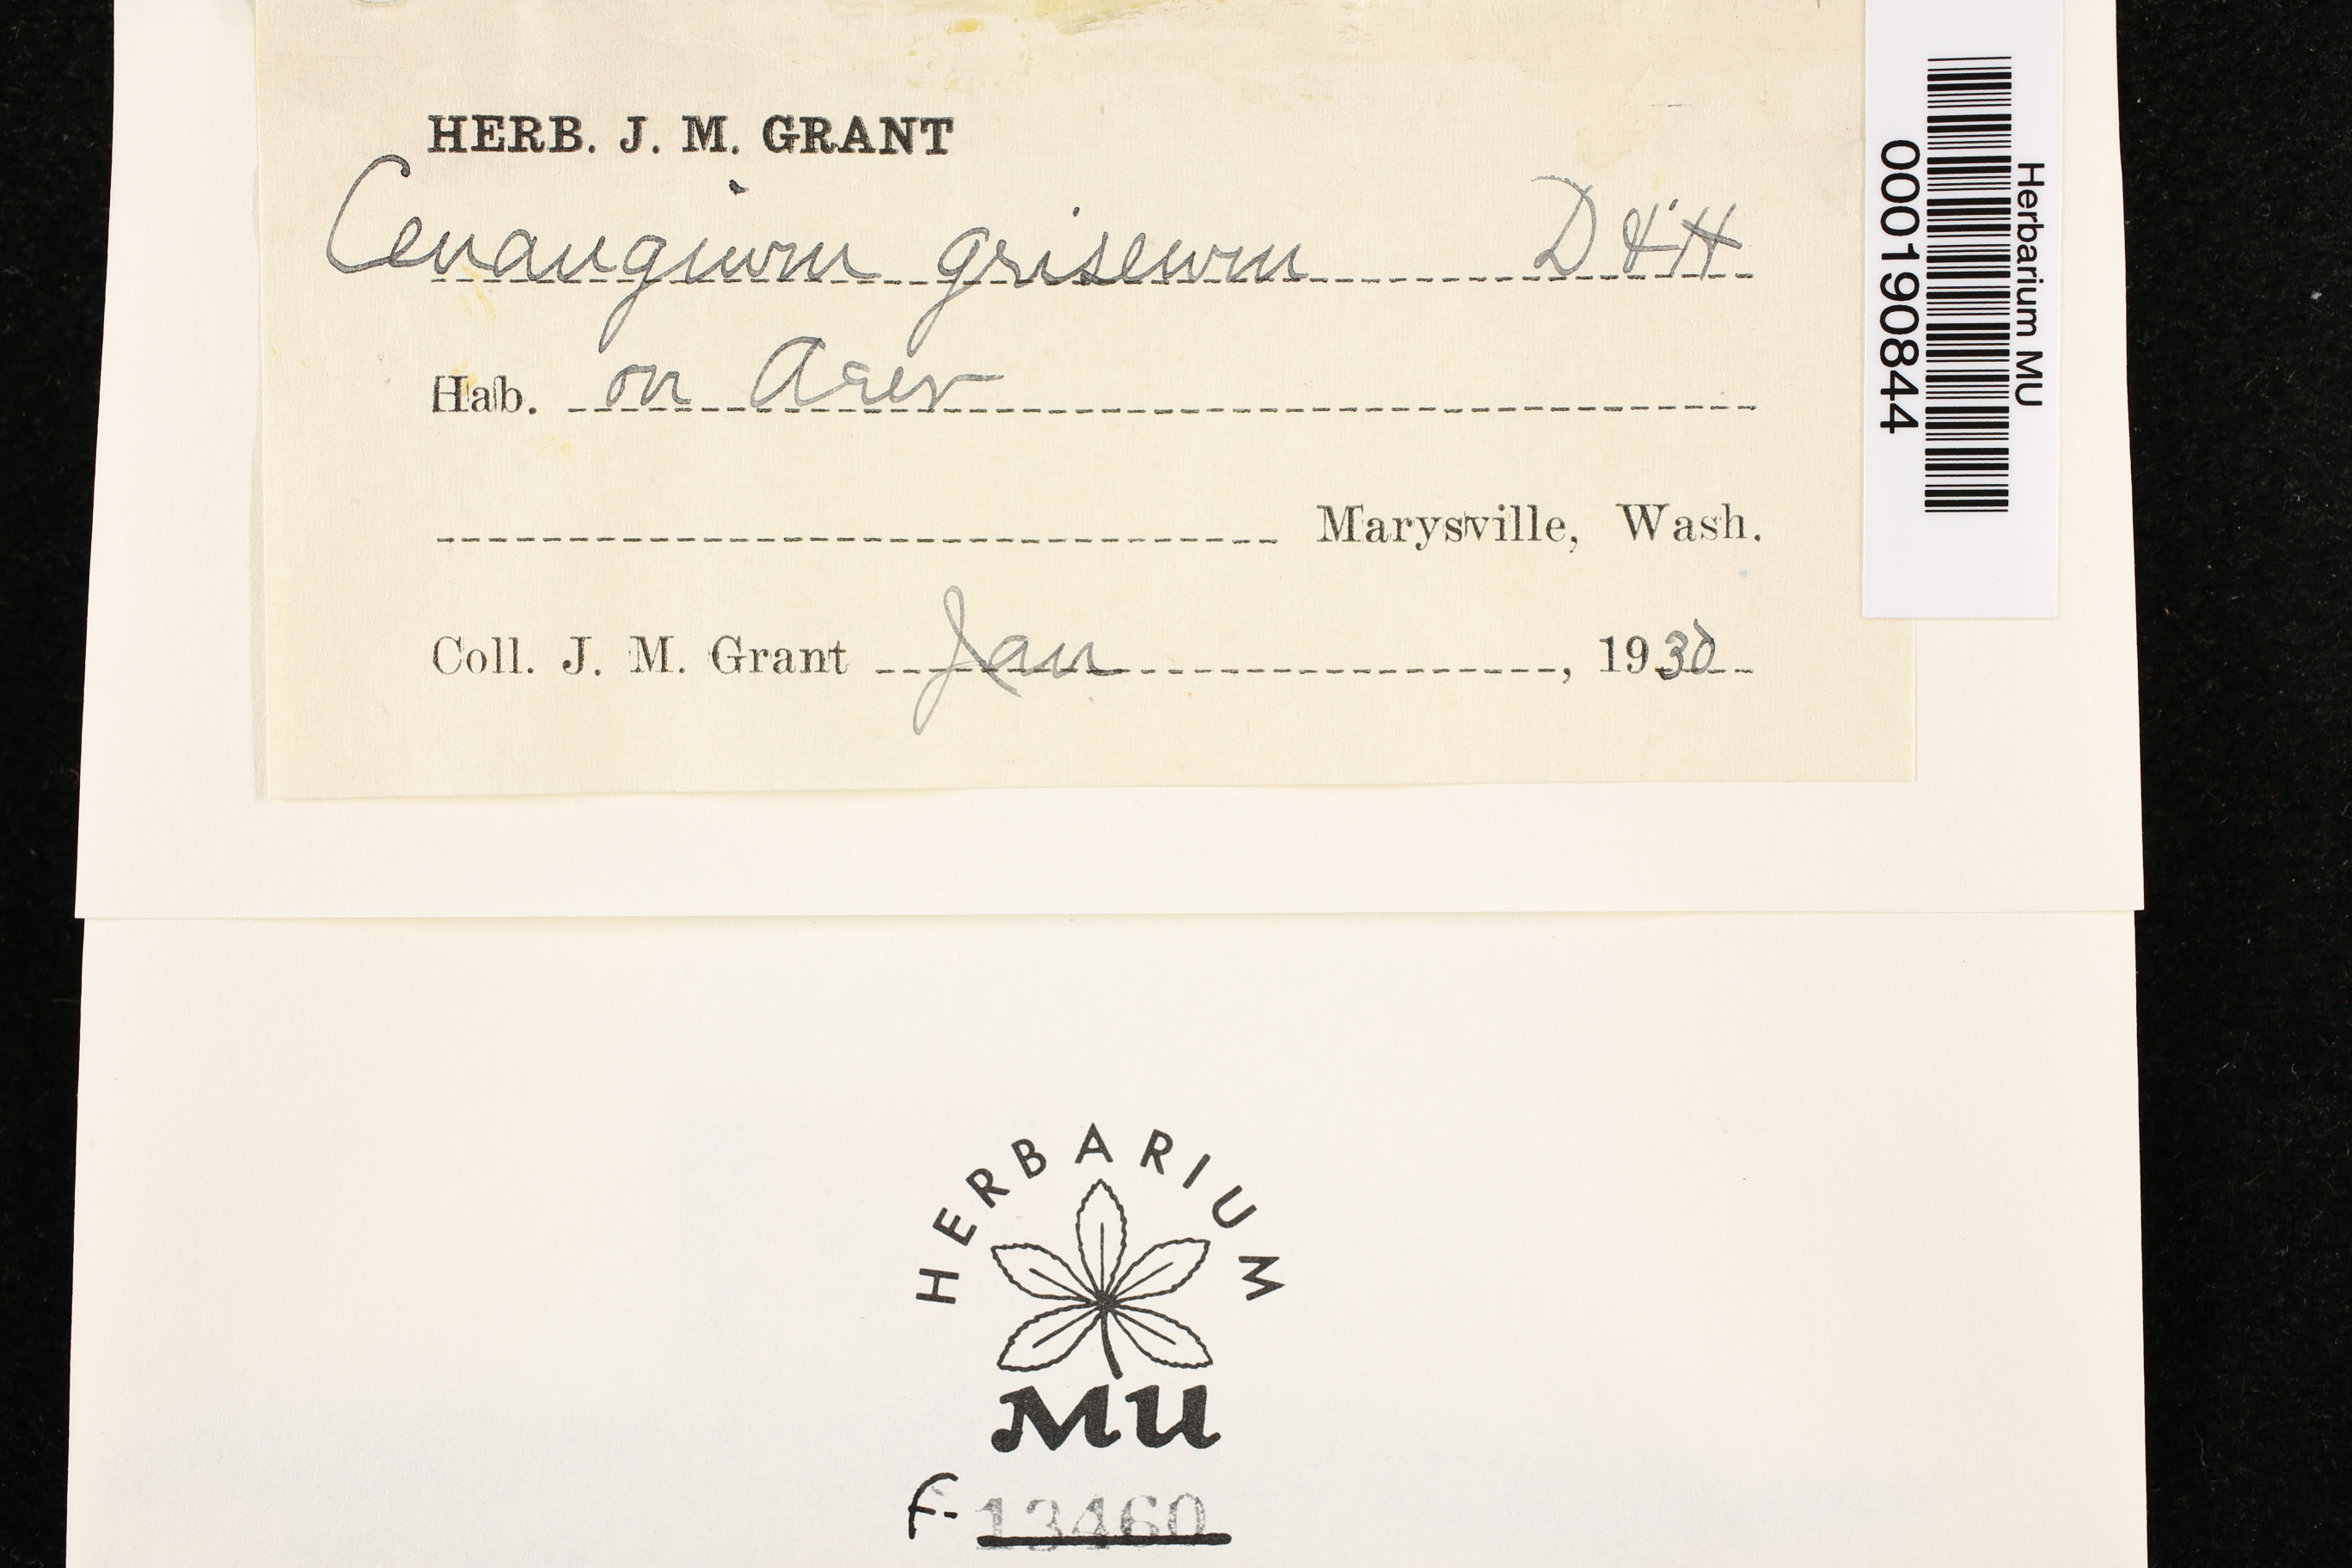 HERB. J. M. GRANT
Cenangium griseum D & H
Hab. on Acer
Marysville, Wash.
Coll. J. M. Grant Jan, 1930
Herbarium MU
000190844
HERBARIUM
MU
F- 13460